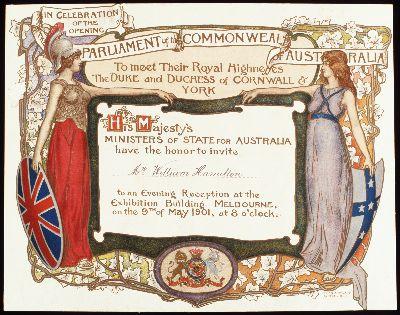 IN CELEBRATION
OF THE
OPENING
PARLIAMENT of the COMMONWEALTH of AUSTRALIA
To meet Their Royal Highnesses
The DUKE and DUCHESS of CORNWALL &
YORK
His Majesty's
MINISTERS OF STATE FOR AUSTRALIA
have the honor to invite
Mr William Hamilton
to an Evening Reception at the
Exhibition Building MELBOURNE,
on the 9th of May 1901, at 8 o'clock.